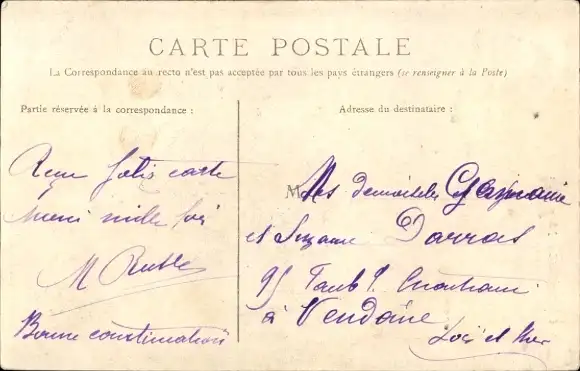 CARTE POSTALE
La Correspondance au recto n'est pas acceptée par tous les pays étrangers (se renseigner à la Poste)
Partie réservée à la correspondance :
Reçu Jolie carte
Merci mille fois
M
Bonne continuation
Adresse du destinataire :
M
Mes demoiselles Germaine
et Suzanne Darras
95 Faub
à Vendôme
Loir et Cher